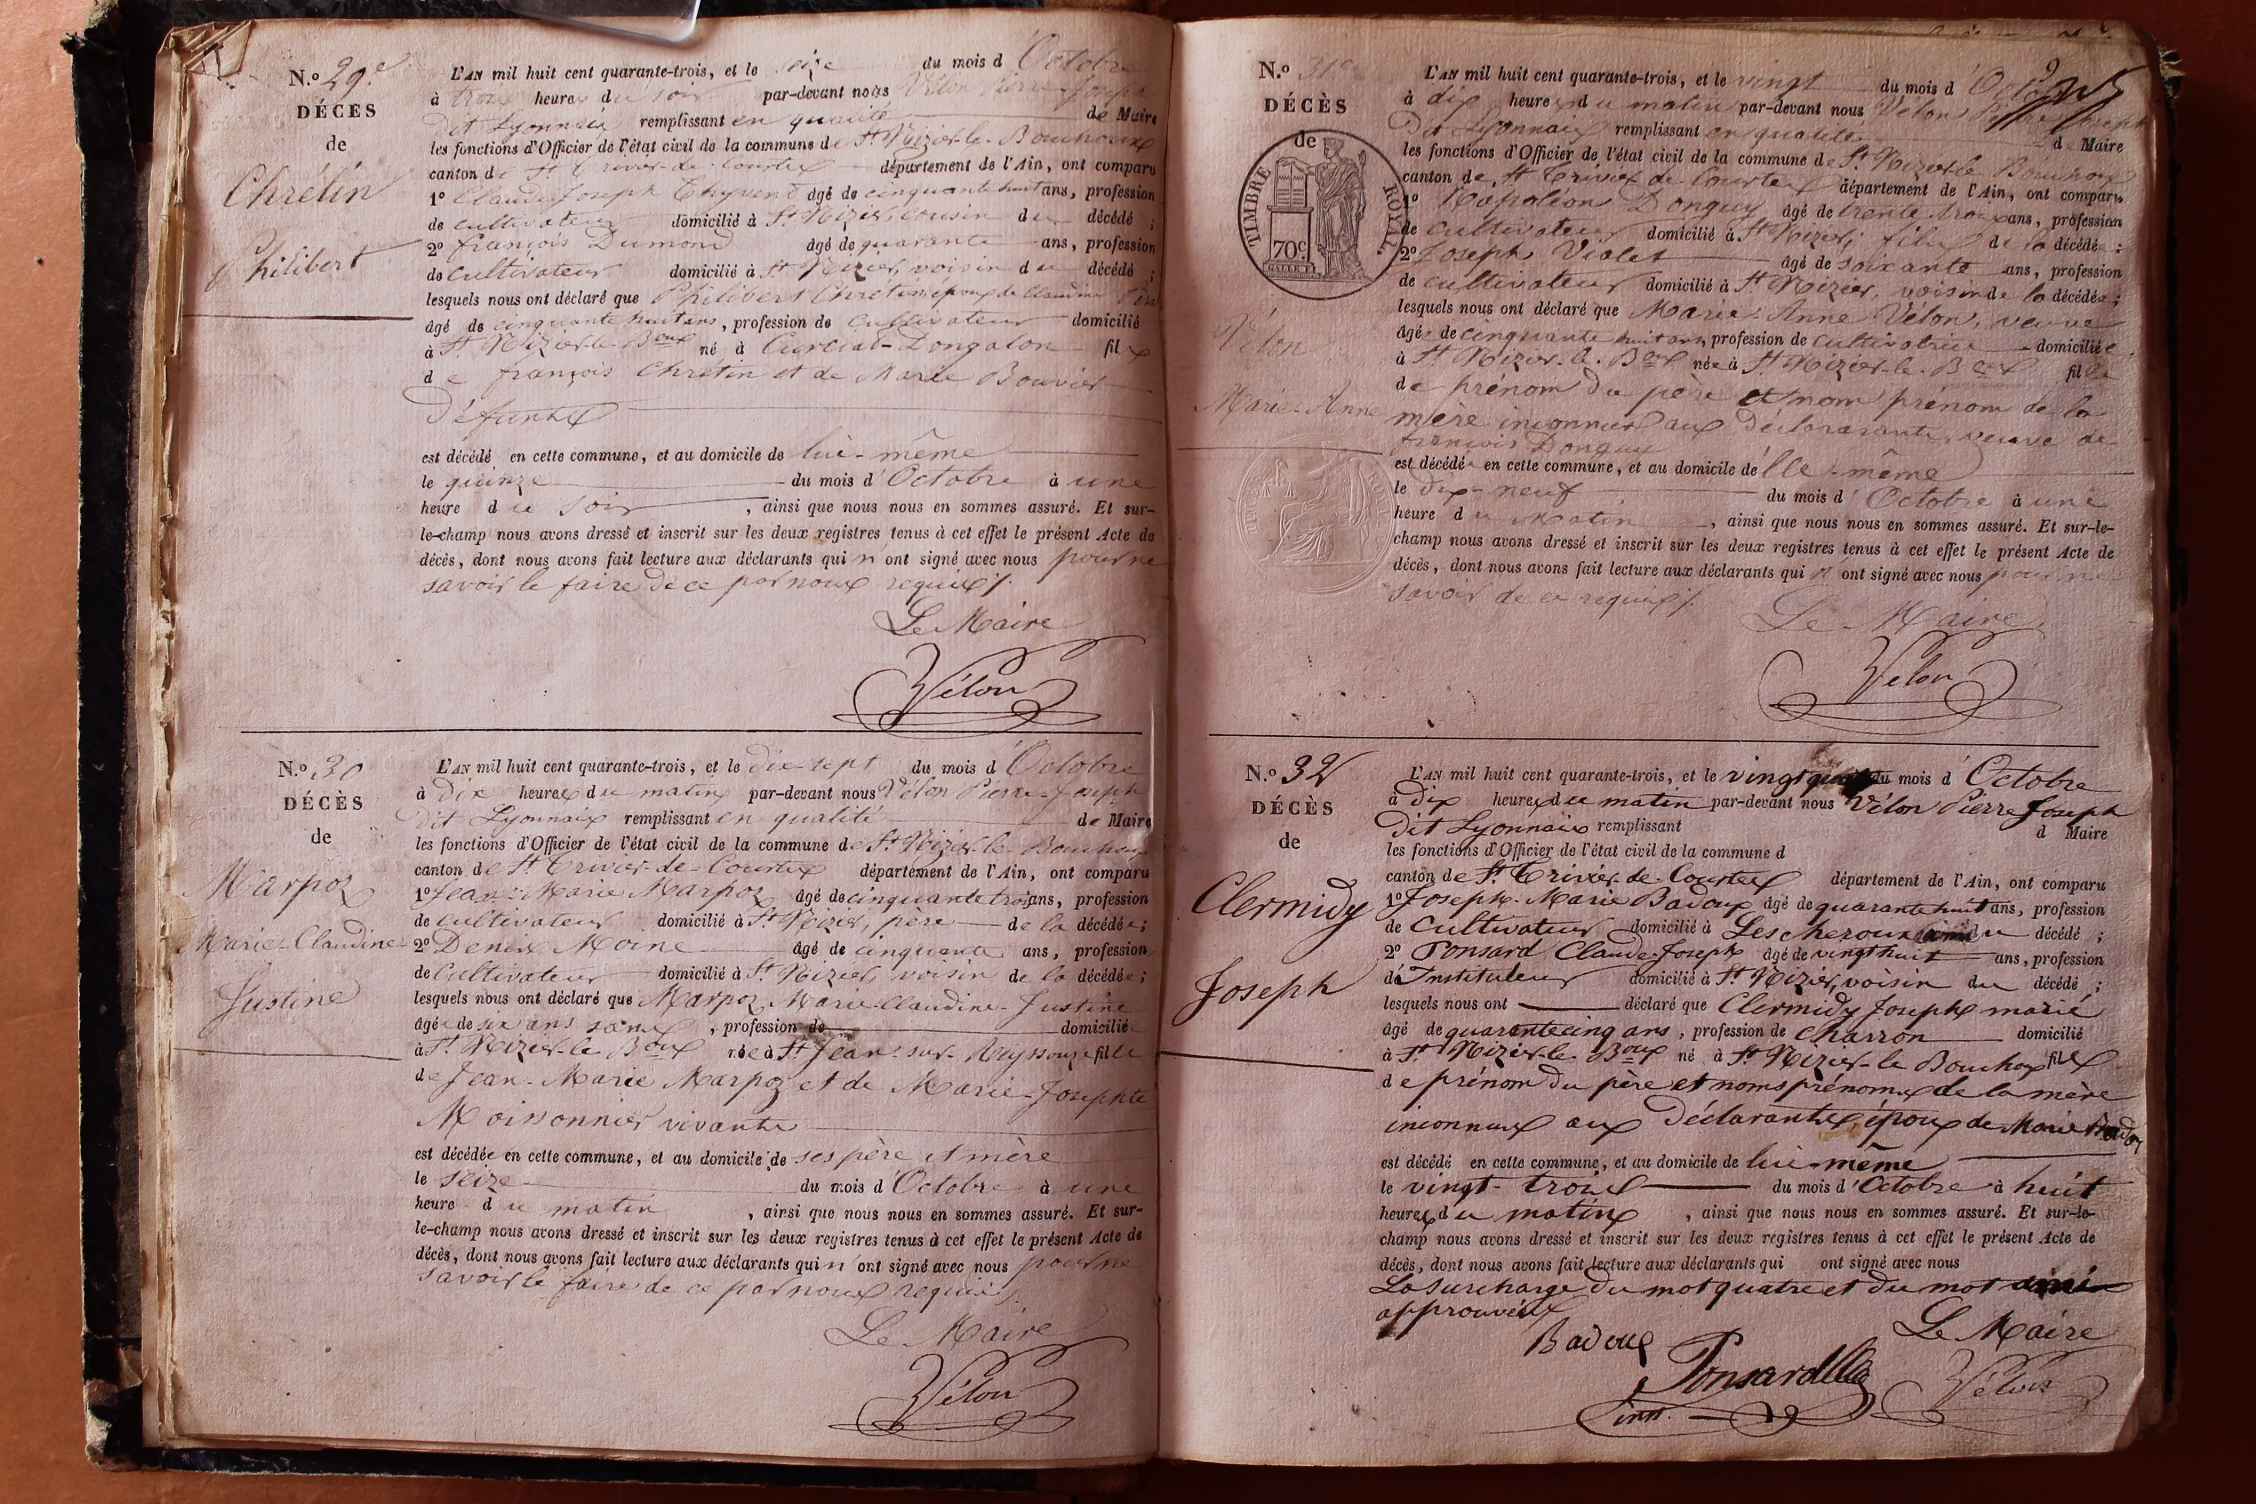 N.º 29.e
DÉCES
de
Chrétin
Philibert
L'AN mil huit cent quarante-trois, et le seize du mois d'Octobre
à trois heures du soir par-devant nous Vélon Pierre-Joseph
Dit Lyonnais remplissant en qualité de Maire
les fonctions d'Officier de l'état civil de la commune de St Nizier-le-Bouchoux
canton de St Trivier-de-Courtes département de l'Ain, ont comparu
1º Claude Joseph âgé de cinquante huit ans, profession
de cultivateur domicilié à St Nizier, cousin du décédé ;
2º françois Dumond âgé de quarante ans, profession
de cultivateur domicilié à St Nizier, voisin du décédé ;
lesquels nous ont déclaré que Philibert Chrétin époux de Claudine
âgé de cinquante huit ans, profession de cultivateur domicilié
à St Nizier-le-Boux né à Curciat-Dongalon fils
de françois Chretin et de Marie Bouvier
Défunts
est décédé en cette commune, et au domicile de lui-même
le quinze du mois d'Octobre à une
heure du soir, ainsi que nous nous en sommes assuré. Et sur-
le-champ nous avons dressé et inscrit sur les deux registres tenus à cet effet le présent Acte de
décès, dont nous avons fait lecture aux déclarants qui n'ont signé avec nous pour ne
savoir le faire de ce par nous requis ./.
Le Maire
Vélon
N.º 30
DÉCÈS
de
Marpoz
Marie-Claudine
Justine
L'AN mil huit cent quarante-trois, et le dix sept du mois d'Octobre
à Dix heures du matin par-devant nous Vélon Pierre-Joseph
Dit Lyonnais remplissant en qualité de Maire
les fonctions d'Officier de l'état civil de la commune de St Nizier-le-Bouchoux
canton de St Trivier-de-Courtes département de l'Ain, ont comparu
1º Jean-Marie Marpoz âgé de cinquante trois ans, profession
de cultivateur domicilié à St Nizier, père de la décédée ;
2º Denis Moine âgé de cinquante ans, profession
de Cultivateur domicilié à St Nizier, voisin de la décédée ;
lesquels nous ont déclaré que Marpoz Marie Claudine-Justine
âgée de six ans , profession de domicilié
à St Nizier-le Boux née à St Jean-sur-Reyssouze fille
de Jean-Marie Marpoz et de Marie-Josephte
Moissonnier vivants
est décédée en cette commune, et au domicile de ses père et mère
le seize du mois d'Octobre à une
heure du matin, ainsi que nous nous en sommes assuré. Et sur-
le-champ nous avons dressé et inscrit sur les deux registres tenus à cet effet le présent Acte de
décès, dont nous avons fait lecture aux déclarants qui n'ont signé avec nous pour ne
savoir le faire de ce par nous requis ./.
Le Maire
Vélon
N.º 31e
DÉCÈS
de
TIMBRE ROYAL
70c.
Vélon
Marie-Anne
L'AN mil huit cent quarante-trois, et le vingt du mois d'Octobre
à dix heures du matin par-devant nous Vélon Pierre Joseph
Dit Lyonnais remplissant en qualité de Maire
les fonctions d'Officier de l'état civil de la commune de St Nizier-le Bouchoux
canton de St Trivier de Courtes département de l'Ain, ont comparu
1º Napoléon Donguy âgé de trente trois ans, profession
de cultivateur domicilié à St Nizier, fils de la décédée ;
2º Joseph Violet âgé de soixante ans, profession
de cultivateur domicilié à St Nizier, voisin de la décédée ;
lesquels nous ont déclaré que Marie-Anne Vélon, veuve
âgée de cinquante huit ans, profession de cultivatrice domiciliée
à St Nizier-le-Boux née à St Nizier-le-Boux fille
de prénom du père et nom prénom de la
mère inconnus aux Déclarants, veuve de
françois Donguy
est décédée en cette commune, et au domicile d'elle-même
le dix-neuf du mois d'Octobre à une
heure du Matin, ainsi que nous nous en sommes assuré. Et sur-le-
champ nous avons dressé et inscrit sur les deux registres tenus à cet effet le présent Acte de
décès, dont nous avons fait lecture aux déclarants qui n'ont signé avec nous pour ne
savoir de ce requis ./.
Le Maire
Vélon
N.º 32
DÉCÈS
de
Clermidy
Joseph
L'AN mil huit cent quarante-trois, et le vingt quatre du mois d'Octobre
à dix heures du matin par-devant nous Vélon Pierre Joseph
Dit Lyonnais remplissant d Maire
les fonctions d'Officier de l'état civil de la commune d
canton de St Trivier-de-Courtes département de l'Ain, ont comparu
1º Joseph-Marie Badoux âgé de quarante huit ans, profession
de Cultivateur domicilié à Lescheroux ami du décédé ;
2º Ponsard Claude Joseph âgé de vingt huit ans, profession
d'Instituteur domicilié à St Nizier, voisin du décédé ;
lesquels nous ont déclaré que Clermidy Joseph marié
âgé de quarante cinq ans, profession de charron domicilié
à St Nizier-le-Boux né à St Nizier-le Bouchoux fils
de prénom du père et noms prénoms de la mère
inconnus aux Déclarants, époux de Marie
est décédé en cette commune, et au domicile de lui-même
le vingt-trois du mois d'Octobre à huit
heures du matin, ainsi que nous nous en sommes assuré. Et sur-le-
champ nous avons dressé et inscrit sur les deux registres tenus à cet effet le présent Acte de
décès, dont nous avons fait lecture aux déclarants qui ont signé avec nous
La surcharge du mot quatre et du mot ami
approuvées
Badoux
Le Maire
Ponsard
Vélon